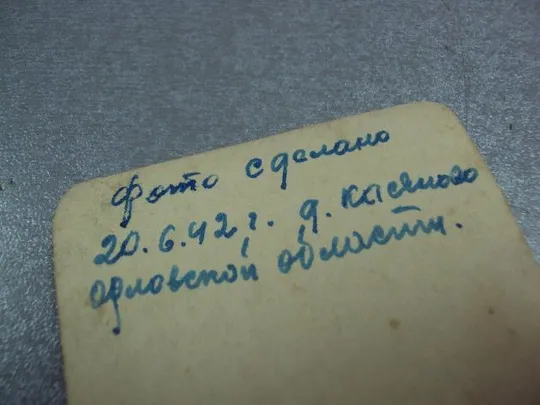 Фото сделано
20.6.42 г. д. Касяново
Орловской области.